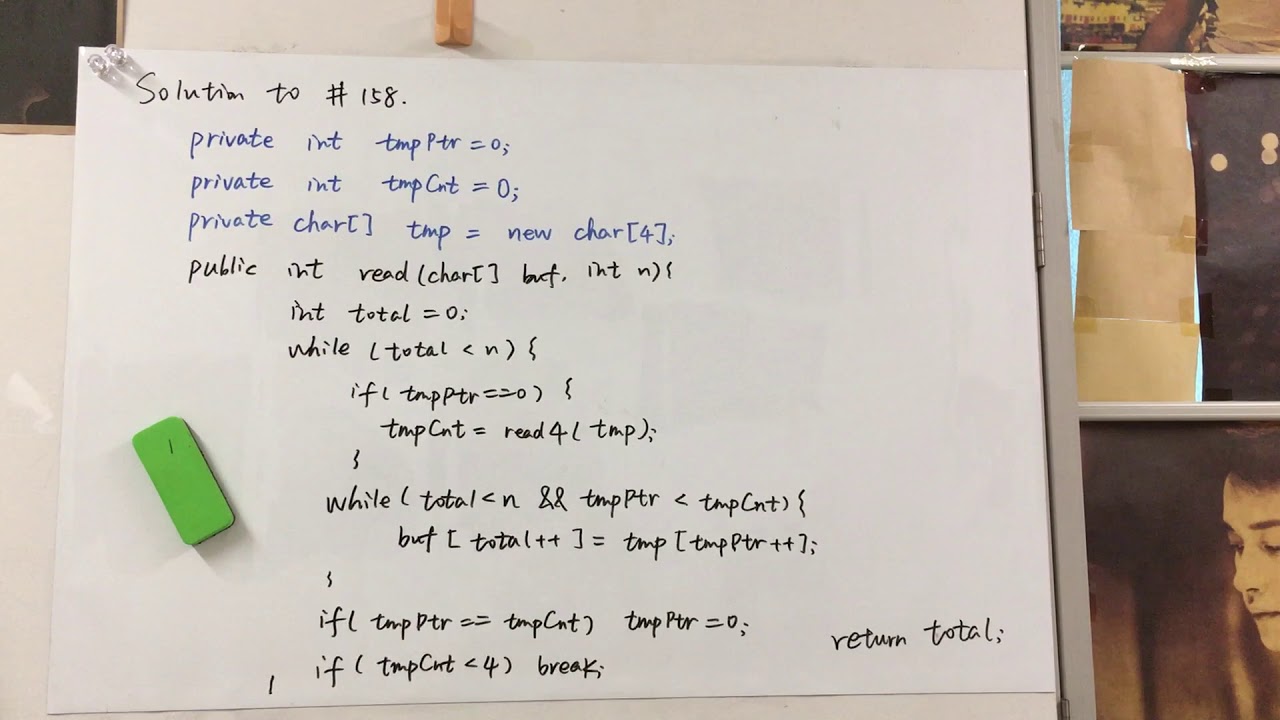 Solution to # 158.
private int tmpPtr = 0;
private int tmpCnt = 0;
private char[] tmp = new char[4];
public int read(char[] buf, int n){
int total = 0;
while (total < n) {
if( tmpPtr==0) {
tmpCnt = read4( tmp);
}
while( total<n && tmpPtr < tmpCnt) {
buf [ total++ ] = tmp [tmpPtr++];
}
if( tmpPtr == tmpCnt) tmpPtr = 0;
if ( tmpCnt < 4) break;
}
return total;